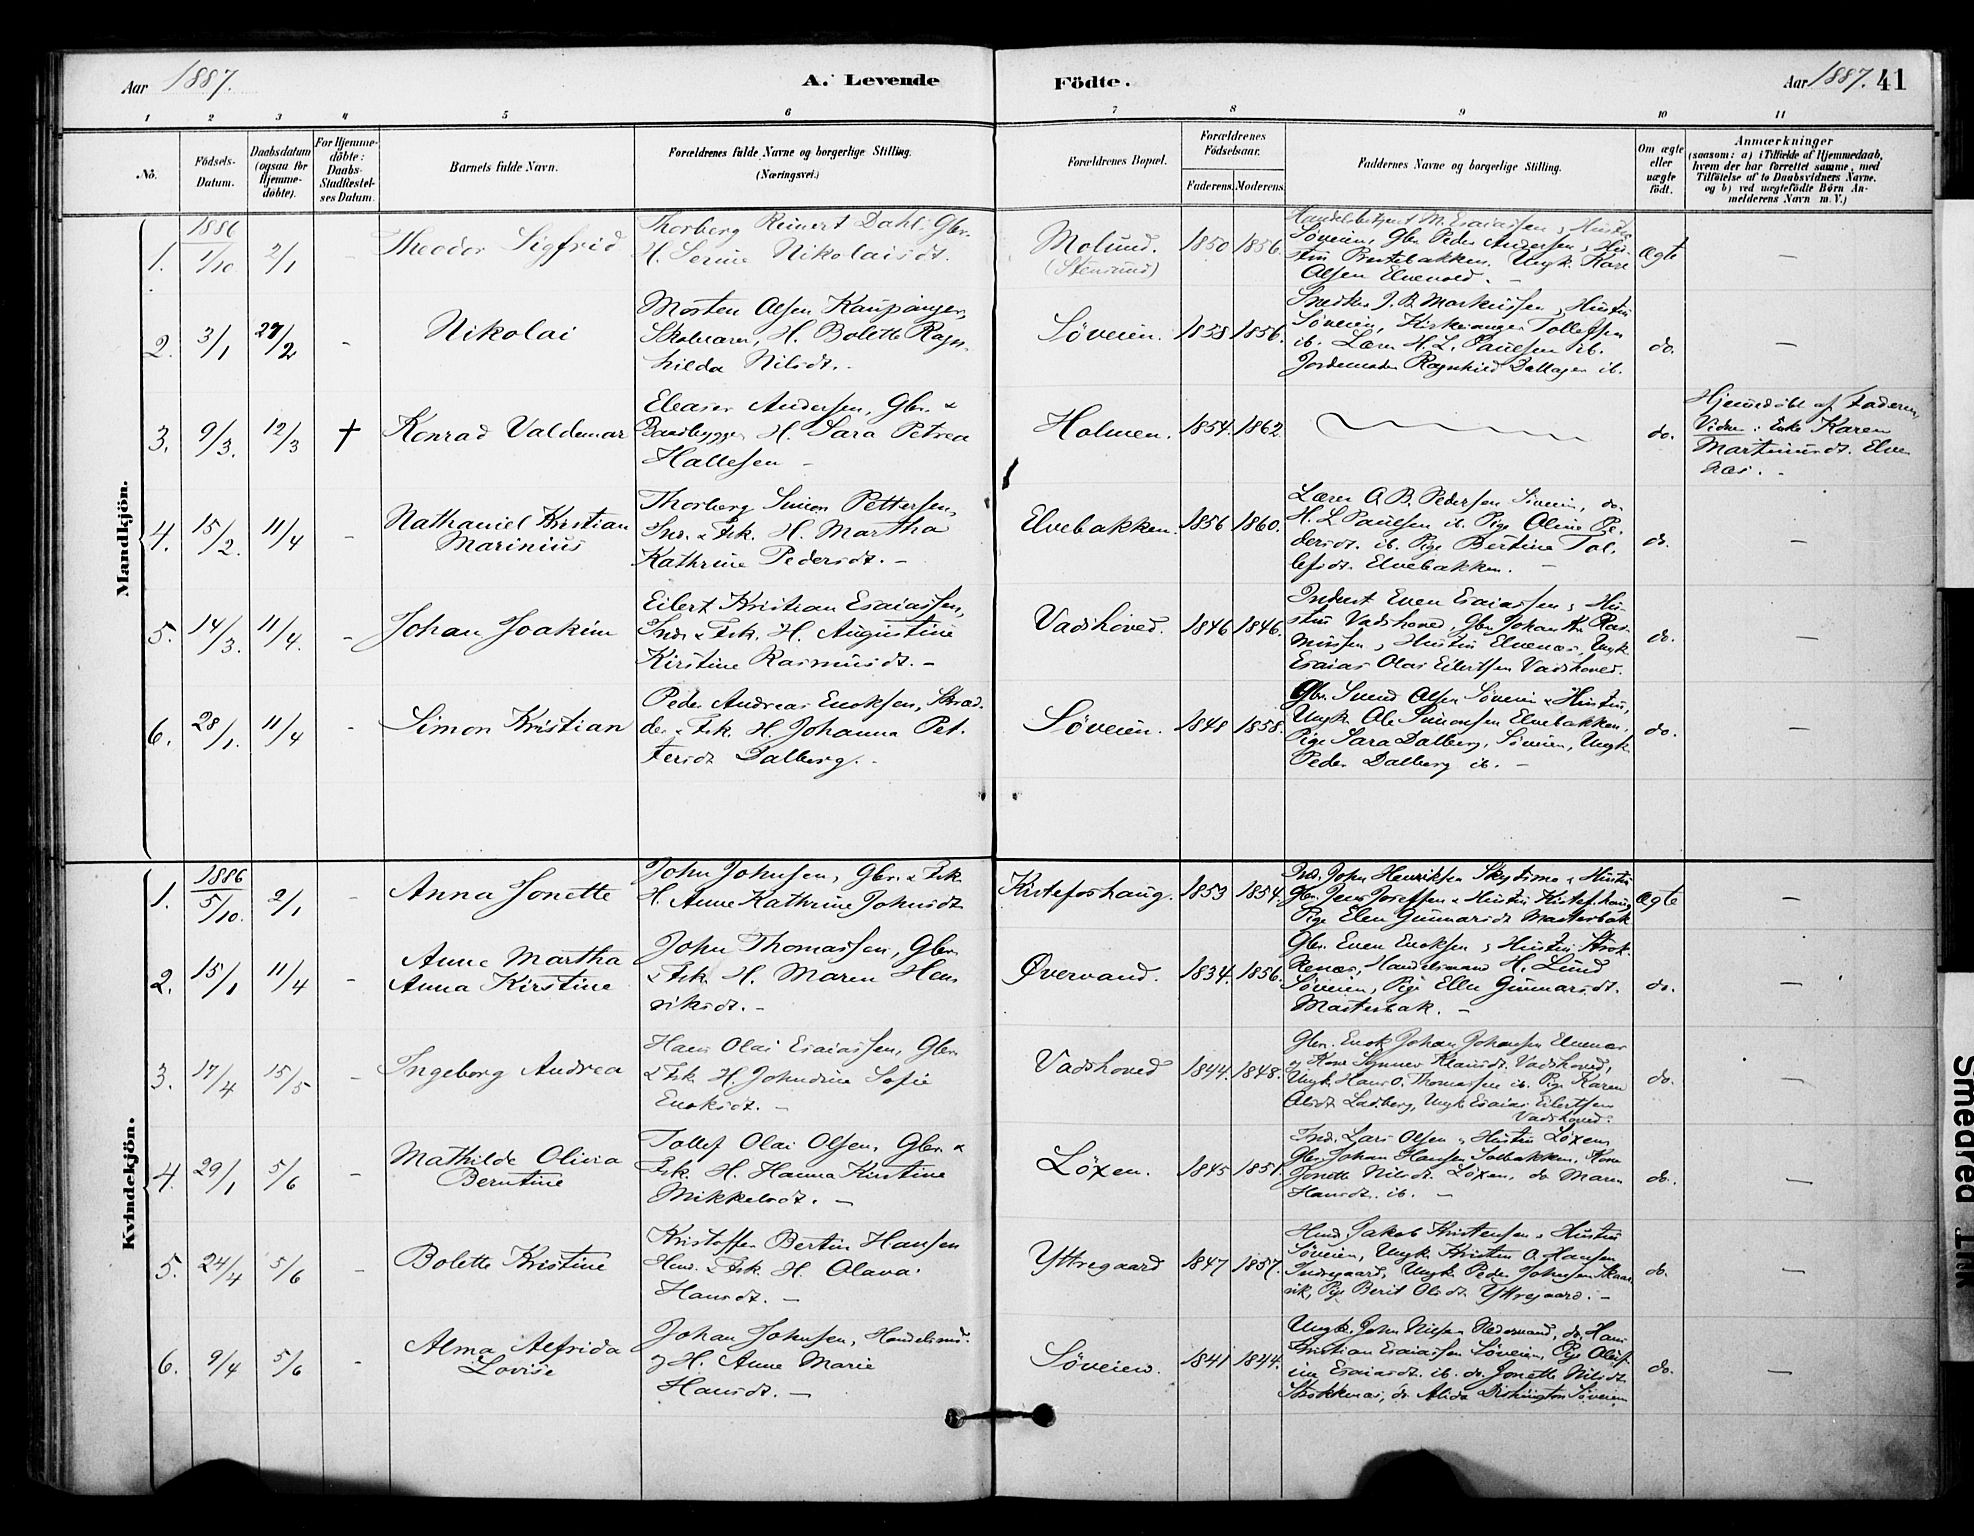 Aar 1887.
A. Levende Födte.
Aar 1887. 41
1 2 3 4 5 6 7 8 9 10 11
No.
Födsels-Datum.
Daabsdatum (ogsaa for Hjemme-döbte).
For Hjemme-döbte: Daabs-Stadfæstel-ses Datum.
Barnets fulde Navn.
Forældrenes fulde Navne og borgerlige Stilling.
(Næringsvei.)
Forældrenes Bopæl.
Forældrenes Födselsaar.
Faderens. Moderens.
Faddernes Navne og borgerlige Stilling.
Om ægte eller uægte födt.
Anmærkninger
(saasom: a) i Tilfælde af Hjemmedaab,
hvem der har forrettet samme, med
Tilföielse af to Daabsvidners Navne.
og b) ved uægtefödte Börn An-
melderens Navn m. V.)
Mandkjön.
1. 1886 1/10 2/1 - Theodor Sigfrid
Thorberg Reinert Dahl, Gbr.
H. Serine Nikolaisdt.
Molund. (Stensund) 1850 1856.
Handelsbetjent M. Esaiassen & Hustru
Søveien, Gbr. Peder Andersen & Hu-
stru Prestebakken. Ungk. Karl
Olsen Elvevold. -
Ægte -
2. 3/1 27/2 - Nikolai
Morten Olsen Kaupanger,
Skolelærer, H. Bolette Ragn-
hilda Nilsdt. -
Søveien. 1838 1856.
Snedker J. B. Markussen, Hustru
Søveien, Kirkesanger Tollefsen
ib. Lærer H. L. Paulsen ib.
Jordemoder Ragnhild ib.
do. -
3. 9/3. 12/3 † Konrad Valdemar
Eleaser Andersen, Gbr. &
Baadbygger H. Sara Petrea
Hallesen -
Holmen. 1854. 1862
do.
Hjemdöbt af Faderen,
Vidner: Enke Karen
Martinusdt. Elve-
næs. -
4. 15/2. 11/4 - Nathaniel Kristian
Marinius
Thorberg Simon Pettersen,
Ind. & Fsk. H. Martha
Kathrine Pedersdt. -
Elvebakken. 1856 1860.
Lærer O. B. Pedersen Søveien, do.
H. L. Paulsen ib. Pige Oline Pe-
dersdt. ib. Pige Bertine Tol-
lefsdt. Elvebakken. -
do. -
5. 14/3. 11/4. - Johan Joakim
Eilert Kristian Esaiassen,
Ind. & Fsk. H. Augustine
Kirstine Rasmusdt. -
Vadshoved. 1846 1846.
Inderst Even Esaiassen & Hu-
stru Vadshoved, Gbr. Johan Ras-
mussen & Hustru Elvenæs, Ungk.
Esaias Olai Eilertsen Vadshoved.
do. -
6. 28/1. 11/4 - Simon Kristian
Peder Andreas Enoksen, Skræd-
der & Fsk. H. Johanna Pet-
tersdt Dalberg. -
Søveien. 1848 1858.
Gbr. Svend Olsen Søveien & Hustru,
Ungk. Ole Simonsen Elvebakken,
Pige Sara Dalberg, Søveien, Ungk.
Peder Dalberg ib. -
do. -
Kvindekjön.
1. 1886 5/10. 2/1 - Anna Jonette
John Johnsen, Gbr. & Fsk.
H. Anne Kathrine Johnsdt
Kisteforshaug. 1853 1854.
Ind. John Henriksen & Hustru
Gbr. Jens Josefsen & Hustru Kisteforshaug
Pige Elen Gunnarsdt Masterbak
Ægte -
2. 15/1 11/4 - Anne Martha
Anna Kirstine
John Thomassen, Gbr.
& Fsk. H. Maren Hen-
riksdt. -
Øvervand. 1834. 1856.
Gbr. Even Enoksen & Hustru Strok-
kenæs, Handelsmand H. Lund
Søveien, Pige Ellen Gunnarsdt.
Masterbak. -
do. -
3. 17/4 15/5 - Ingeborg Andrea
Hans Olai Esaiassen, Gbr.
& Fsk. H. Johndine Sofie
Enoksdt. -
Vadshoved 1844. 1848.
Gbr. Enok Johan Johansen Elvenæs
& Kone Synnev Klausdt. Vadshoved,
Ungk. Hans O. Thomassen ib. Pige Karen
Olsdt Ladberg, Ungk. Esaias Eilertsen
Vadshoved.
do. -
4. 29/1 5/6 - Mathilde Olivia
Berntine
Tollef Olai Olsen, Gbr. &
Fsk. H. Hanna Kirstine
Mikkelsdt. -
Løxen. 1845 1851
Ind. Lars Olsen & Hustru Løxen,
Gbr. Johan Hansen Solbakken, Kone
Jonette Nilsdt. Løxen, do Maren
Hansdt. ib. -
do. -
5. 24/4 5/6 - Bolette Kristine
Kristoffer Bertin Hansen
Hmd. & Fsk. H. Olava
Hansdt. -
Yttregaard 1847 1857.
Hmd. Jakob Kristensen & Hustru
Søveien, Ungk. Kristen O. Hansen
Indregaard, Ungk. Peder Johnsen Skaar-
vik, Pige Berit Olsdt Yttregaard. -
do. -
6. 9/4 5/6 - Alma Alfrida
Lovise
Johan Johnsen, Handelsmd.
& H. Anne Marie
Hansdt. -
Søveien. 1841 1844.
Ungk. John Nilsen Nedrevand, do. Hans
Kristian Esaiassen Søveien, Pige
Esaiasdt. ib. do. Jonette Nilsdt.
Strokkenæs, do. Alida Dishington Søveien
do. -
Smedred Ink